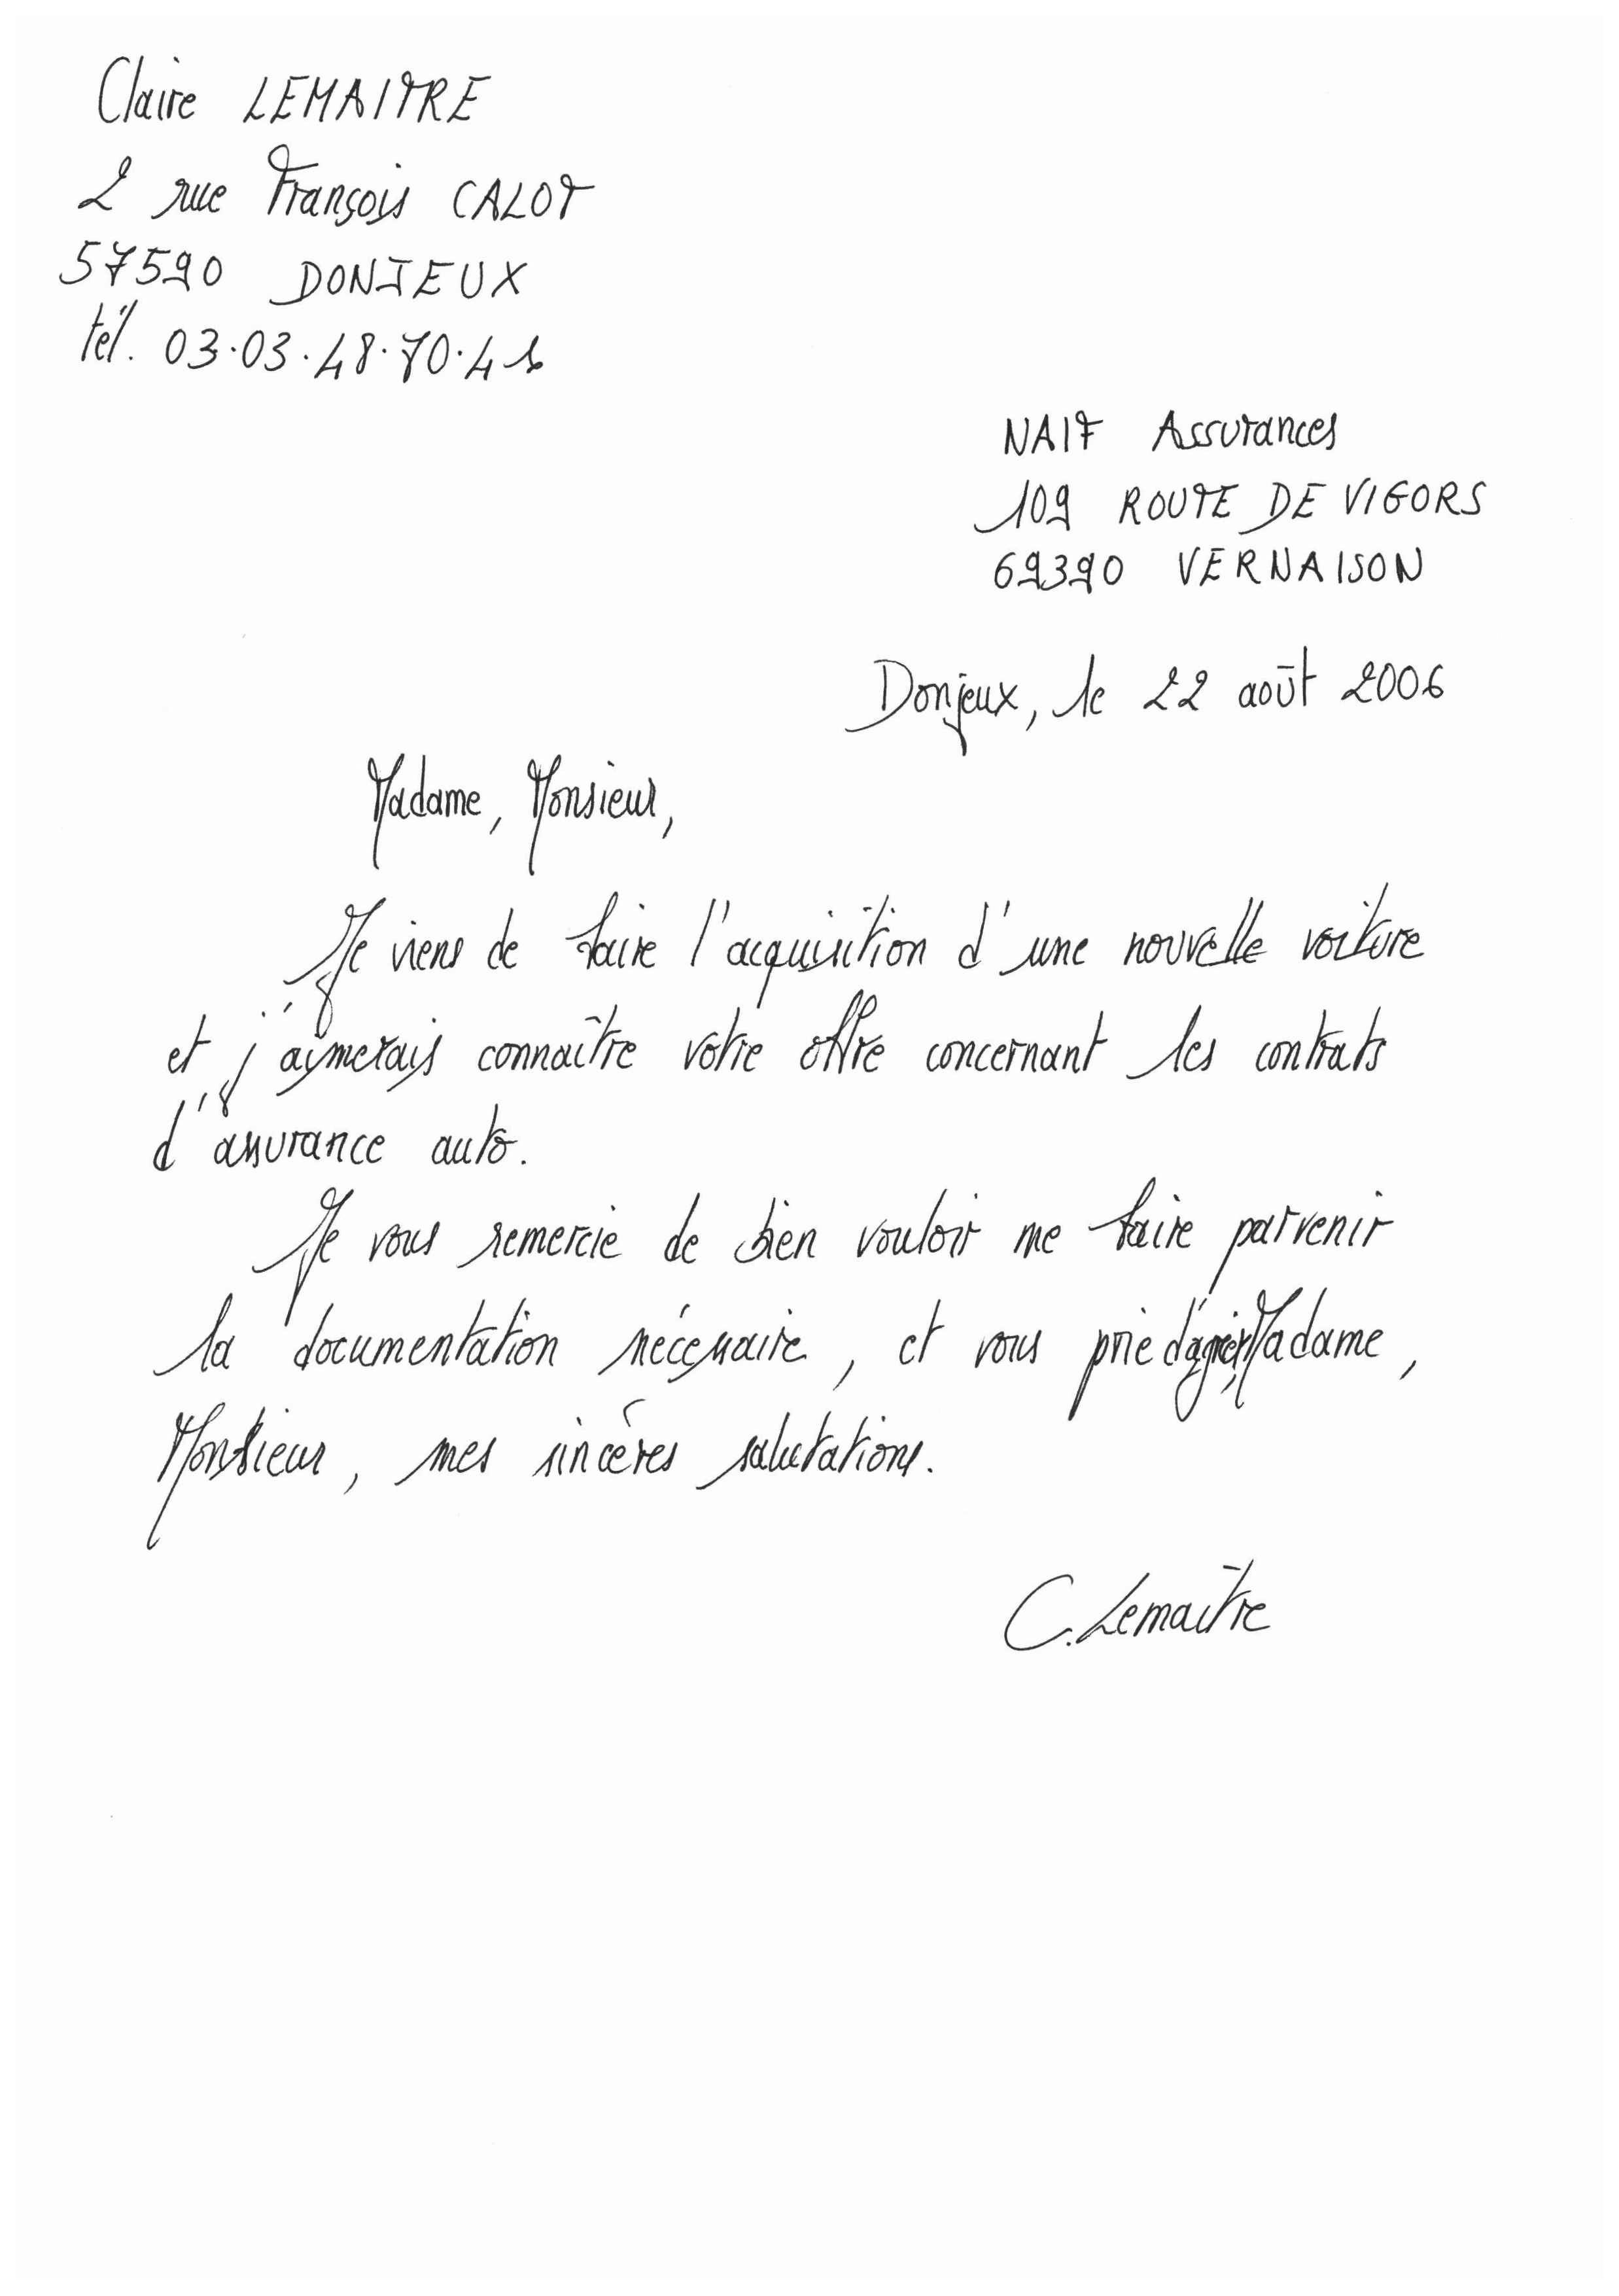 Claire LEMAITRE
2 rue François CALOT
57590 DONJEUX
tél. 03.03.48.70.46
NAIF Assurances
109 ROUTE DE VIGORS
69390 VERNAISON
Donjeux, le 22 août 2006
Madame, Monsieur,
Je viens de faire l'acquisition d'une nouvelle voiture
et j'aimerais connaître votre offre concernant les contrats
d'assurance auto.
Je vous remercie de bien vouloir me faire parvenir
la documentation nécessaire, et vous prie d'agréer, Madame,
Monsieur, mes sincères salutations.
C. Lemaître